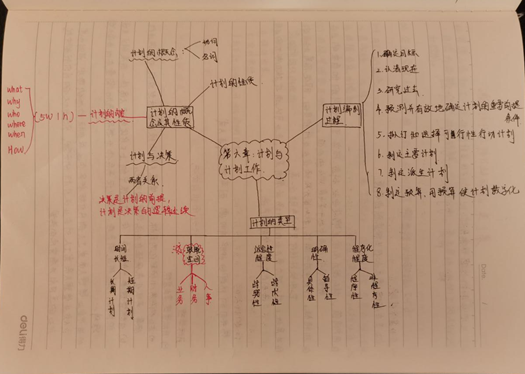 计划的概念
动词
名词
计划的性质
what
why
who
where
when
How
(5W1H)
计划内容
计划的概
念及其性质
计划与决策
两者关系
决策是计划的前提,
计划是决策的逻辑延续
第六章:计划与
计划工作
计划编制
过程
1.确定目标
2.认清现在
3.研究过去
4.预测并有效地确定计划的重要前提
条件
5.拟订和选择可行性行动计划
6.制定主要计划
7.制定派生计划
8.制定预算,用预算使计划数字化
计划的类型
时间
长短
职能
空间
综合性
程度
明确
性
程序化
程度
长期计划
短期计划
业务
财务
人事
战略性
战术性
具体性
指导性
程序性
非程序性
deli